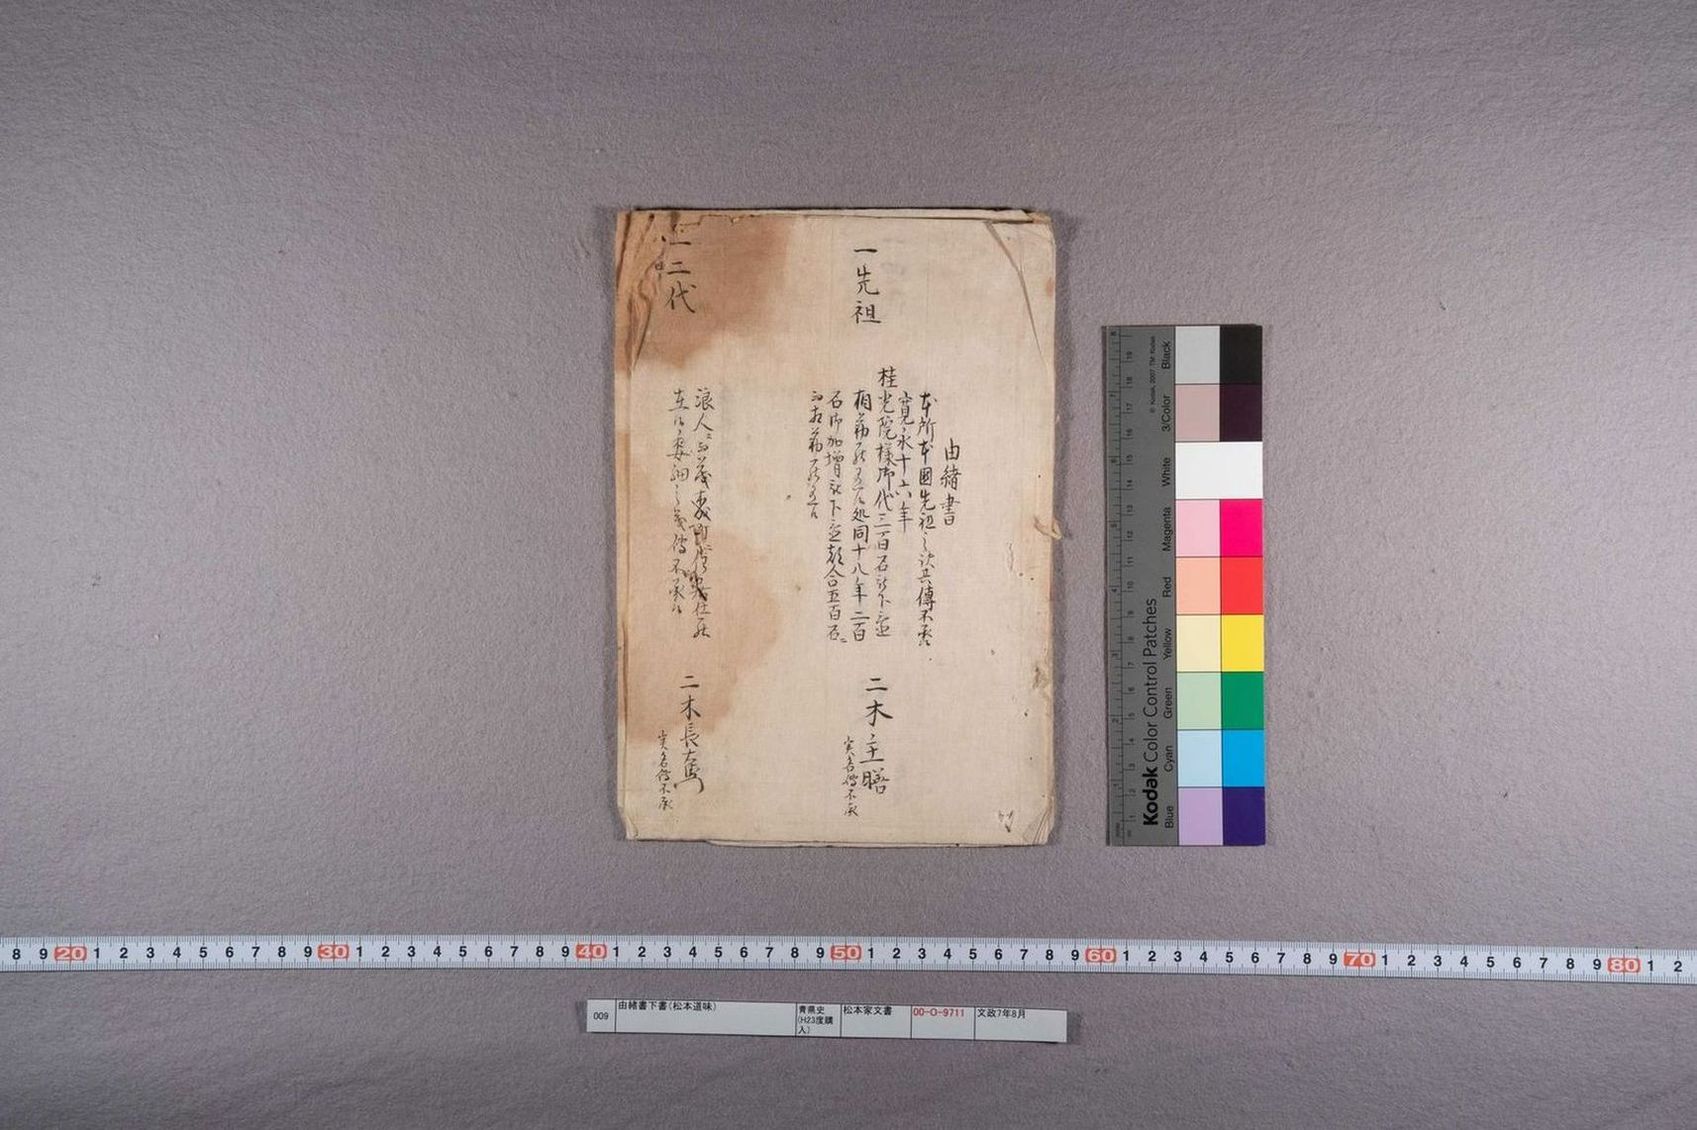 由緒書
本所本國先祖之訳共傳不承
一先祖
寛永十六年
桂光院様御代三百石被下置
相勤罷在候処同十八年二百
石御加増被下置都合五百石ニ
而相勤罷在候
二木主膳
実名傳不承
一二代
浪人ニ而
在候委細之義傳不承候
二木長右衛門
実名傳不承
009
由緒書下書(松本道味)
青県史(H23度購入)
松本家文書
00-O-9711
文政7年8月
Kodak Color Control Patches
© Kodak, 2007 TM: Kodak
Blue Cyan Green Yellow Red Magenta White 3/Color Black
8 9 20 1 2 3 4 5 6 7 8 9 30 1 2 3 4 5 6 7 8 9 40 1 2 3 4 5 6 7 8 9 50 1 2 3 4 5 6 7 8 9 60 1 2 3 4 5 6 7 8 9 70 1 2 3 4 5 6 7 8 9 80 1 2